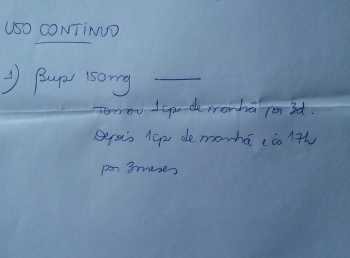 USO CONTÍNUO
1) Bup 150mg
Tomar 1cp de manhã por 3d.
Depois 1cp de manhã e às 17h
por 3 meses